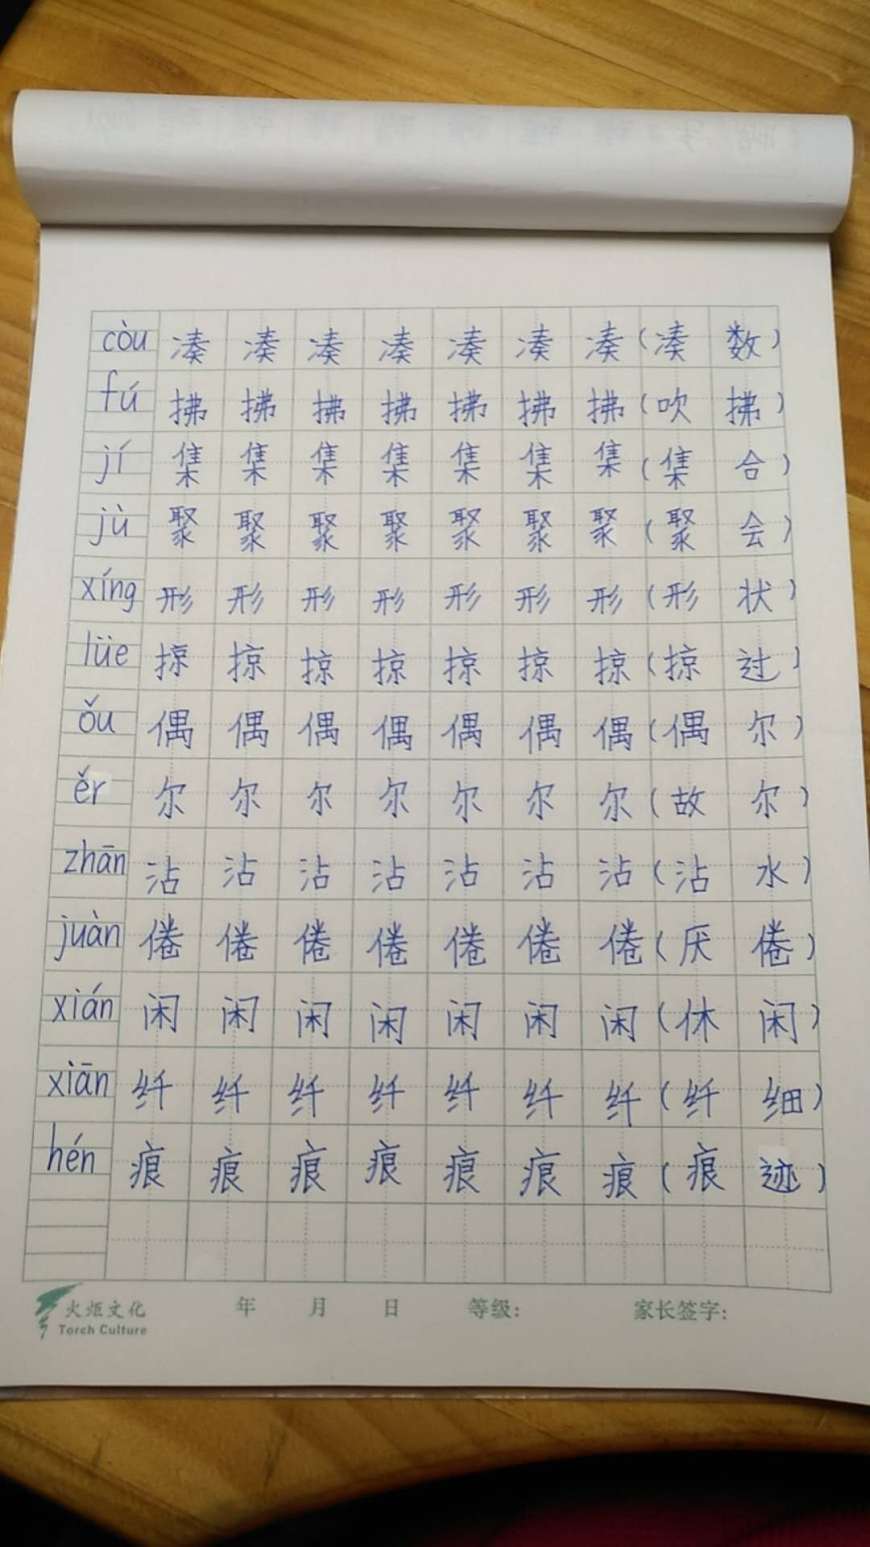 còu 凑 凑 凑 凑 凑 凑 凑 (凑 数)
fú 拂 拂 拂 拂 拂 拂 拂 (吹 拂)
jí 集 集 集 集 集 集 集 (集 合)
jù 聚 聚 聚 聚 聚 聚 聚 (聚 会)
xíng 形 形 形 形 形 形 形 (形 状)
lüe 掠 掠 掠 掠 掠 掠 掠 (掠 过)
ǒu 偶 偶 偶 偶 偶 偶 偶 (偶 尔)
ěr 尔 尔 尔 尔 尔 尔 尔 (故 尔)
zhān 沾 沾 沾 沾 沾 沾 沾 (沾 水)
juàn 倦 倦 倦 倦 倦 倦 倦 (厌 倦)
xián 闲 闲 闲 闲 闲 闲 闲 (休 闲)
xiān 纤 纤 纤 纤 纤 纤 纤 (纤 细)
hén 痕 痕 痕 痕 痕 痕 痕 (痕 迹)
火炬文化 年 月 日 等级: 家长签字:
Torch Culture